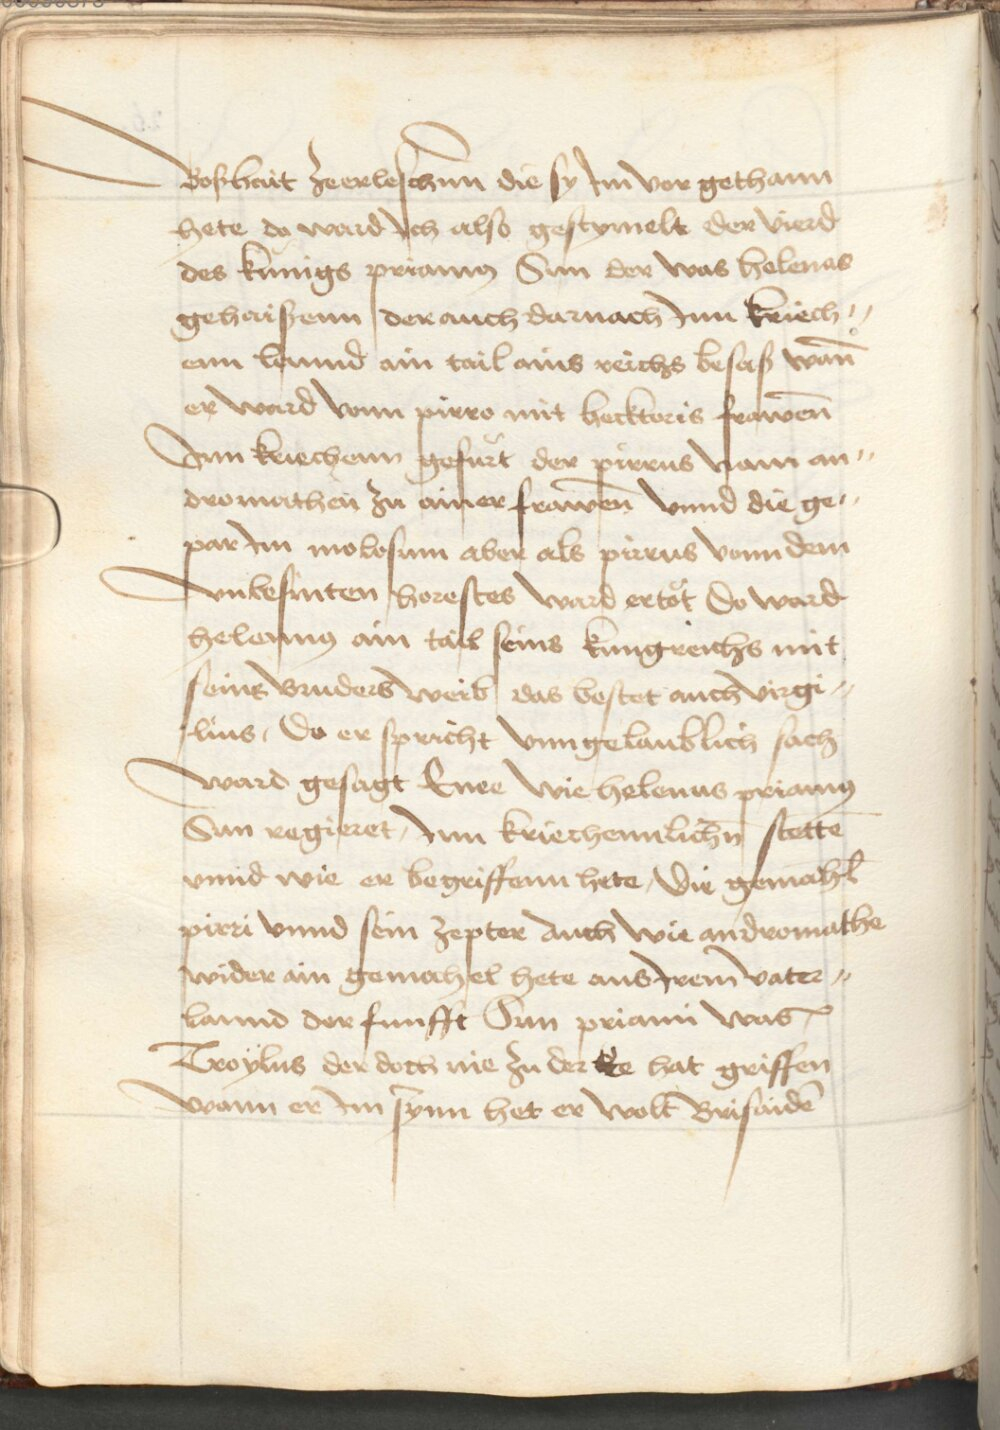 Boßhait zeerleschnn die sy Im vor gethann
hete da ward Ich also gestymelt der Vierd
des kunigs priamus Sun der was helenus
gehaissenn der auch darnach Inn kriech''
enn lannd ain tail ains reichs besaß wañ
er ward vonn pirro mit hecktoris frawen̄
Inn kriechenn gefurt der pirrus nam an''
dromathen zu ainer frawen̄ vnnd die ge''
par Im molosum aber als pirrus vonn dem
vnbesinten horestes ward ertöt Do ward
helenus ain tail seins kungreichs mit
seins bruders weib das bestet auch virgi''
lius. Do er spricht vnngelaublich sach
ward gesagt Enee wie helenus priamus
Sun regieret, Inn kriechennlichn̄ stette
vnnd wie er begriffenn hete, Die gemahl
pirri vnnd sein zepter Auch wie andromathe
wider ain gemahel hete aus Irem vater''
lannd der funfft Sun priami was
Troÿlus der doch nie zu der Ee hat griffen
wann er Im synn het er wolt Brisaidē